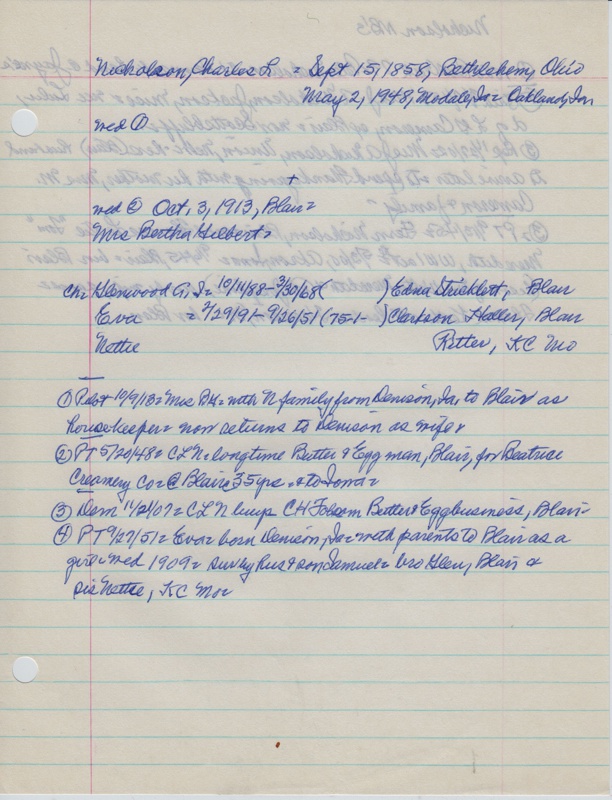 Nicholson, Charles L = Sept 15, 1858, Bethlehem, Ohio
May 2, 1948, Modale, Ia = Oakland, Ia
wed ①
+
wed ② Oct, 3, 1913, Blair =
Mrs Bertha Hilbert =
Ch: Glenwood G, = 10/11/88 - 3/30/68 ( ) Edna Stricklett, Blair
Eva = 7/29/91 - 9/26/51 (75-1- ) Clarkson Haller, Blair
Nettie Ritter, KC Mo
① Pilot 10/9/13 = Mrs BH = with N family from Denison, Ia, to Blair as
housekeeper = now returns to Denison as wife
② PT 5/20/48 = CLN = longtime Butter & Egg man, Blair, for Beatrice
Creamery Co = @ Blair 35 yrs = to Iowa =
③ Dem 11/21/07 = CLN buys CH Folsom Butter & Egg business, Blair =
④ PT 9/27/51 = Eva = born Denison, Ia = with parents to Blair as a
girl = wed 1909 = sur by hus & son Samuel = bro Glen, Blair &
sis Nettie, KC Mo =